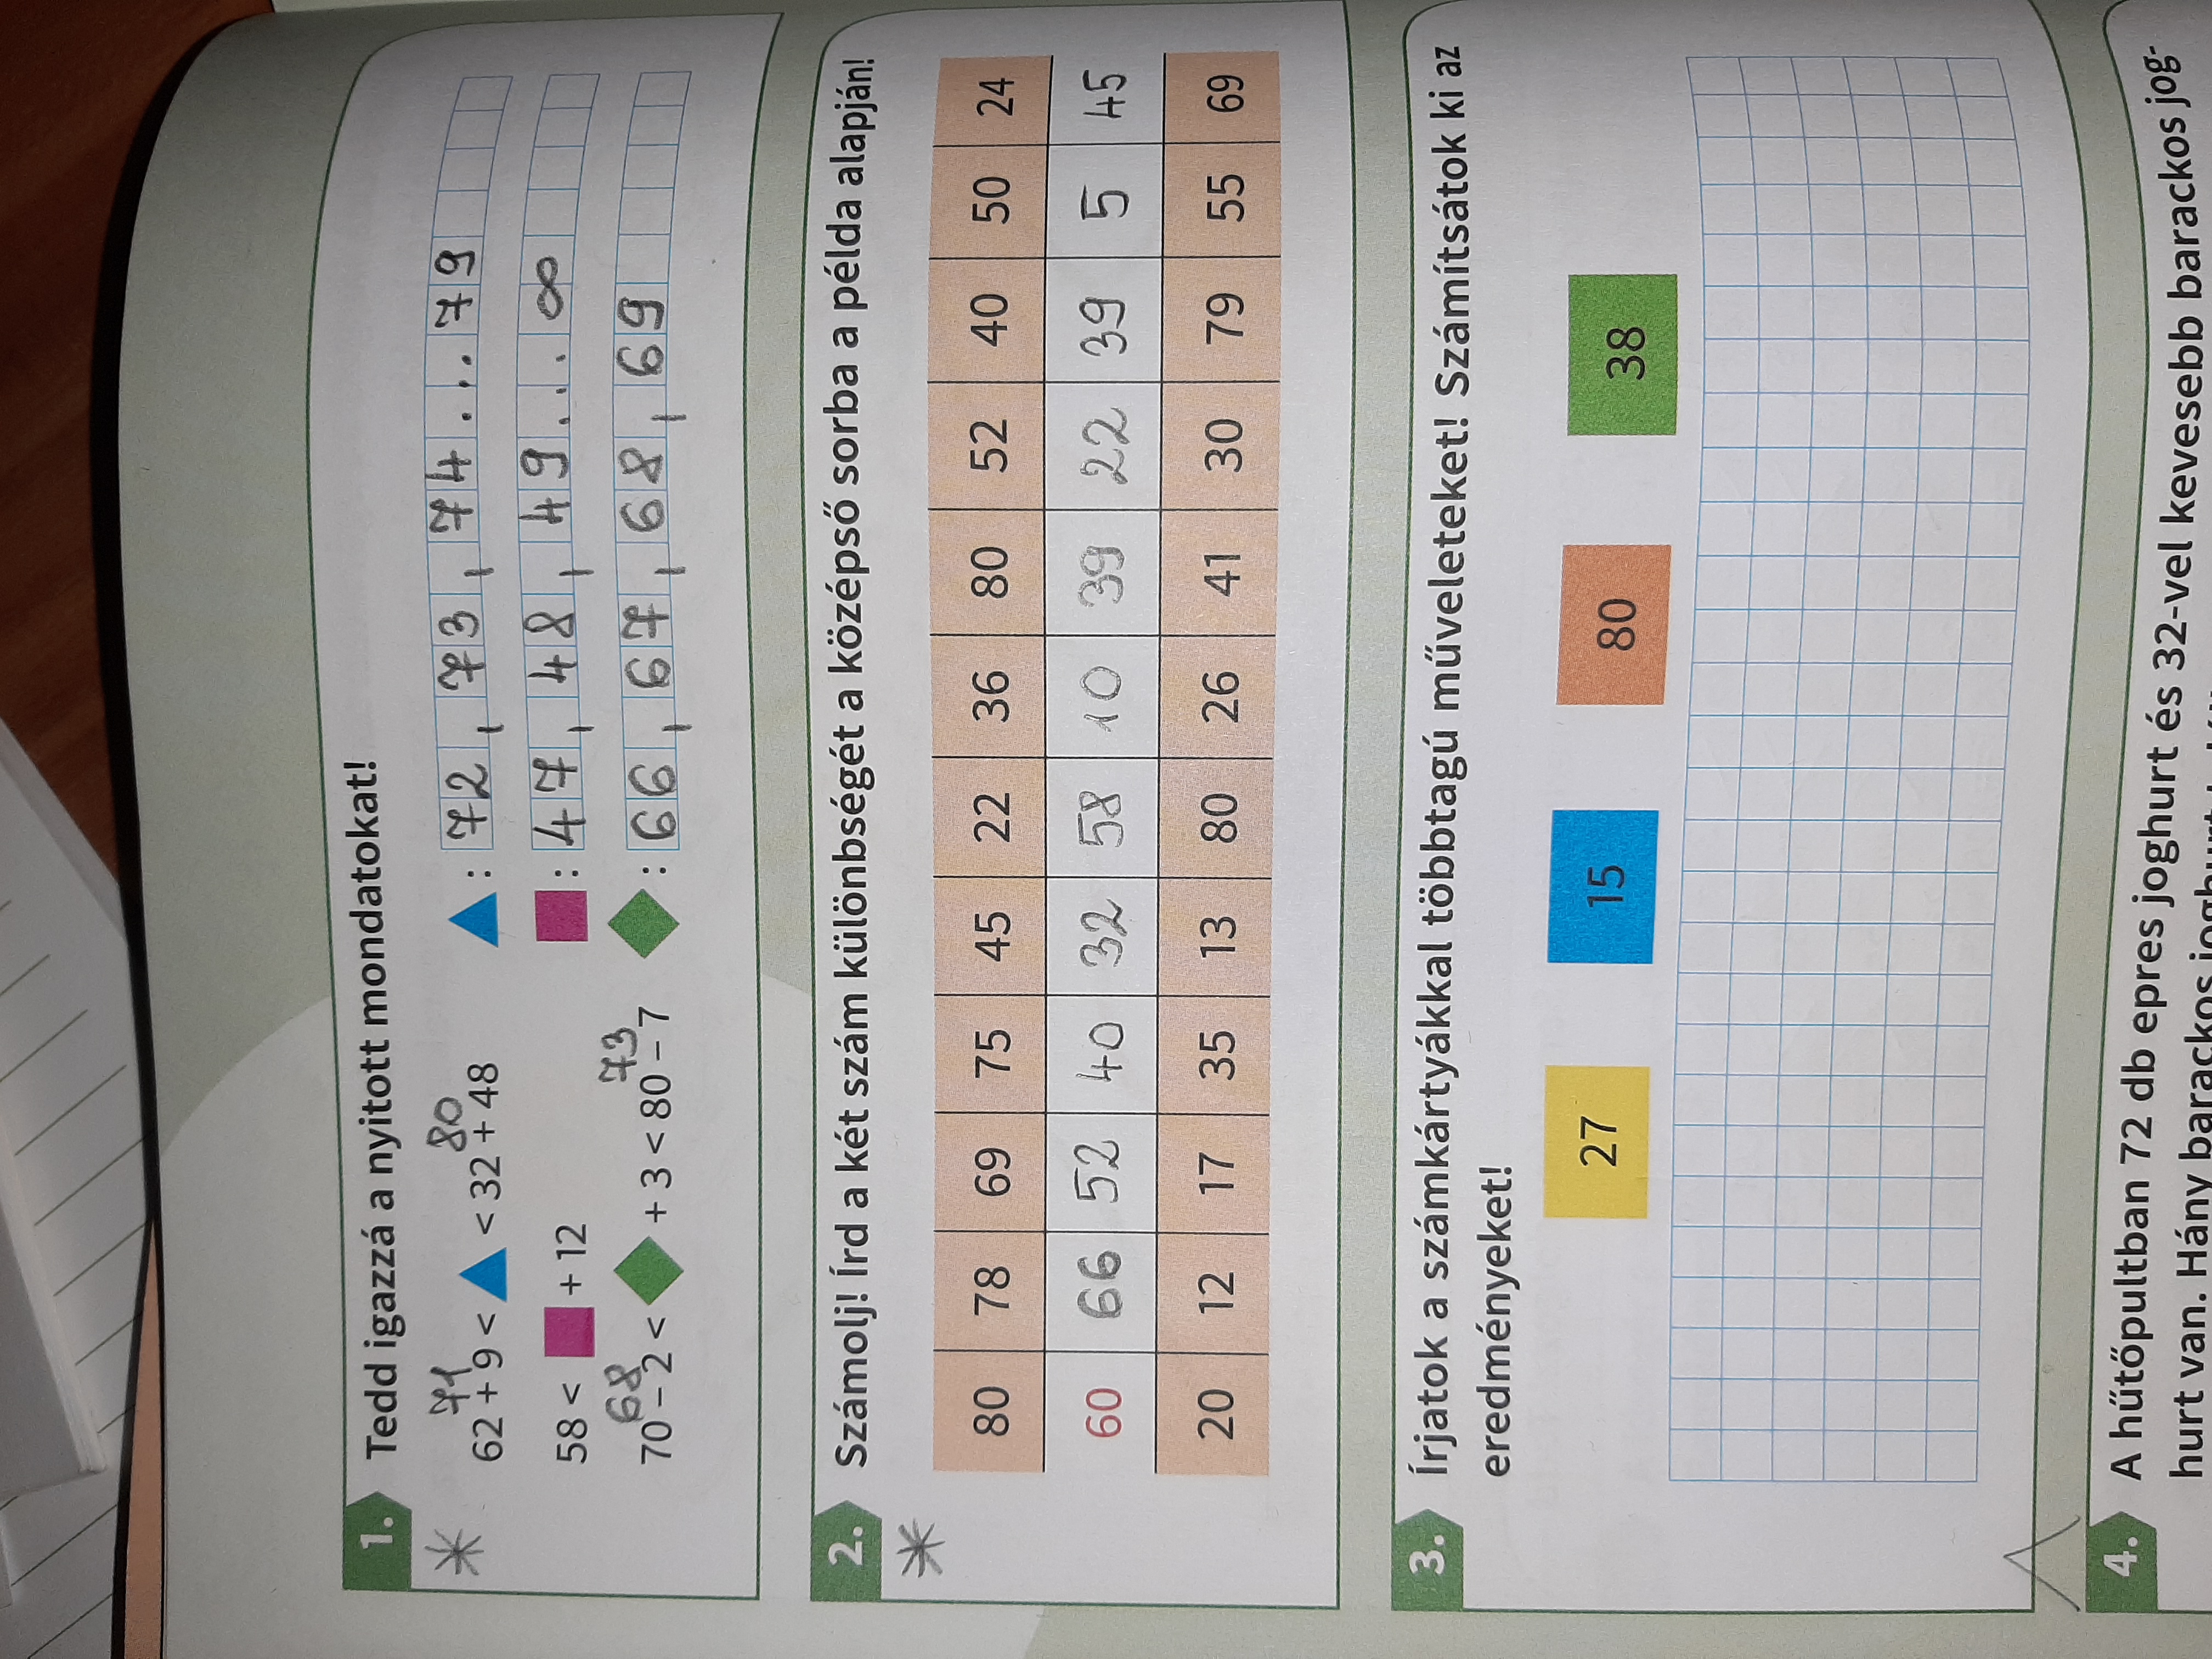 1. Tedd igazzá a nyitott mondatokat!
71 80
62 + 9 < < 32 + 48 : 72, 73, 74...79
58 < + 12 : 47, 48, 49... ∞
68 73
70 – 2 < + 3 < 80 – 7 : 66, 67, 68, 69
2. Számolj! Írd a két szám különbségét a középső sorba a példa alapján!
80 78 69 75 45 22 36 80 52 40 50 24
60 66 52 40 32 58 10 39 22 39 5 45
20 12 17 35 13 80 26 41 30 79 55 69
3. Írjatok a számkártyákkal többtagú műveleteket! Számítsátok ki az
eredményeket!
27 15 80 38
4. A hűtőpultban 72 db epres joghurt és 32-vel kevesebb barackos jog-
hurt van. Hány barackos